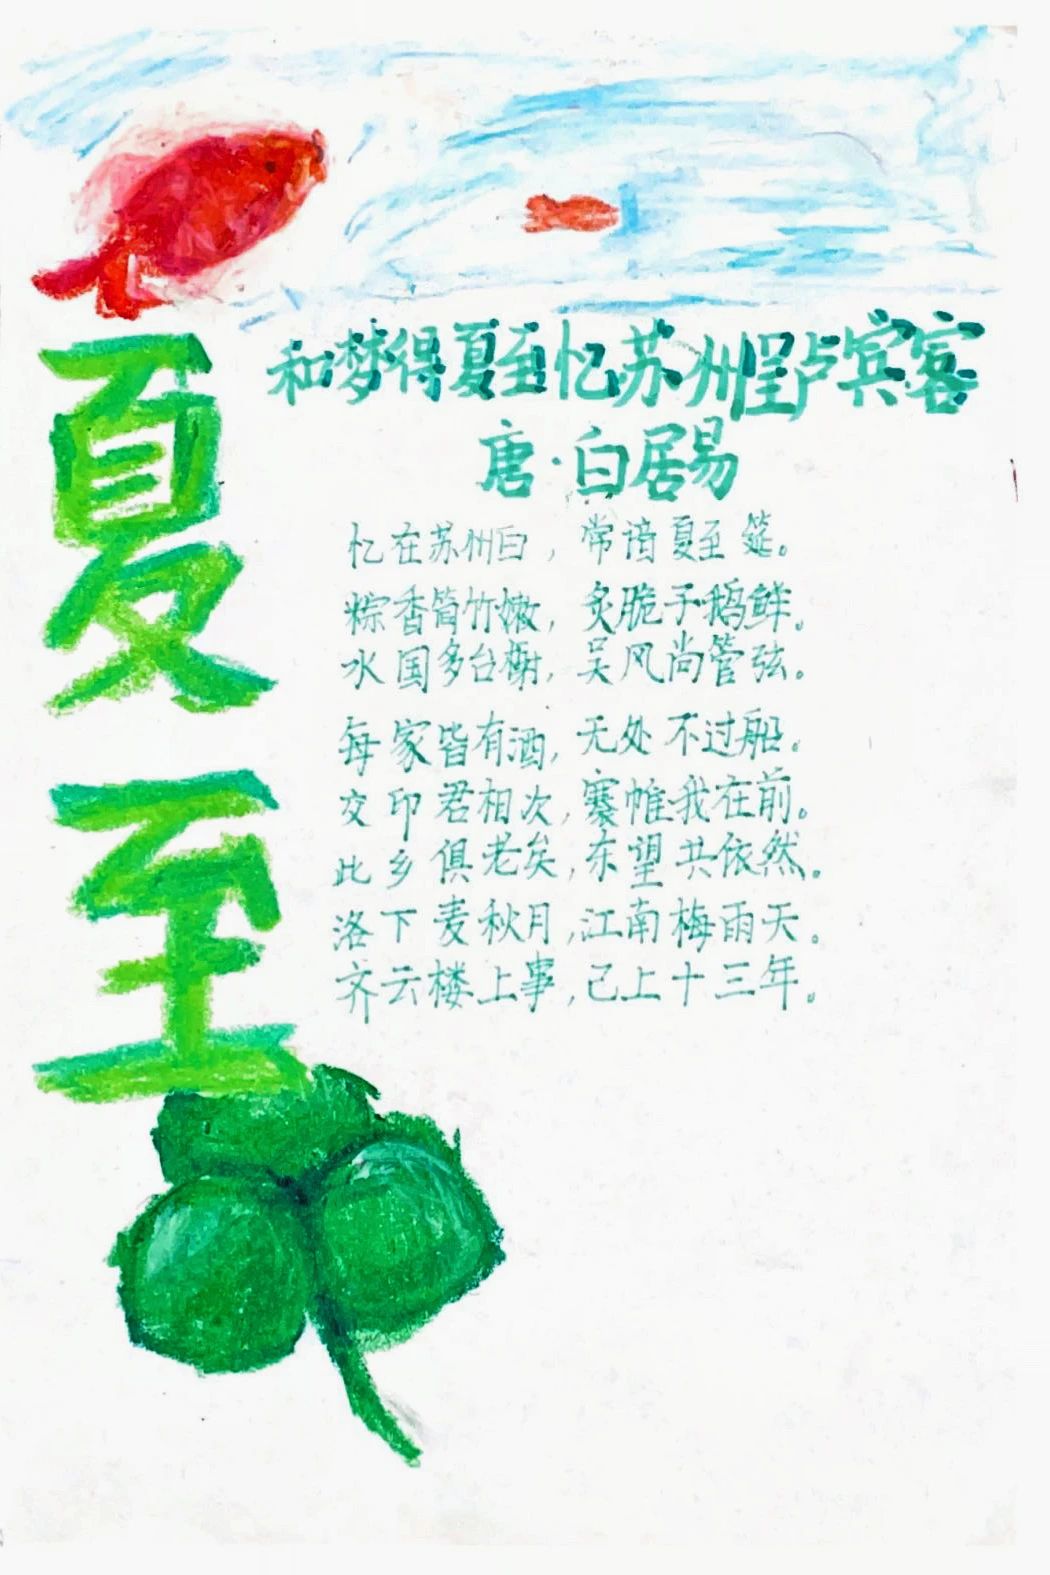 夏至
和梦得夏至忆苏州呈卢宾客
唐·白居易
忆在苏州白，常谙夏至筵。
粽香筒竹嫩，炙脆子鹅鲜。
水国多台榭，吴风尚管弦。
每家皆有酒，无处不过船。
交印君相次，褰帷我在前。
此乡俱老矣，东望共依然。
洛下麦秋月，江南梅雨天。
齐云楼上事，己上十三年。